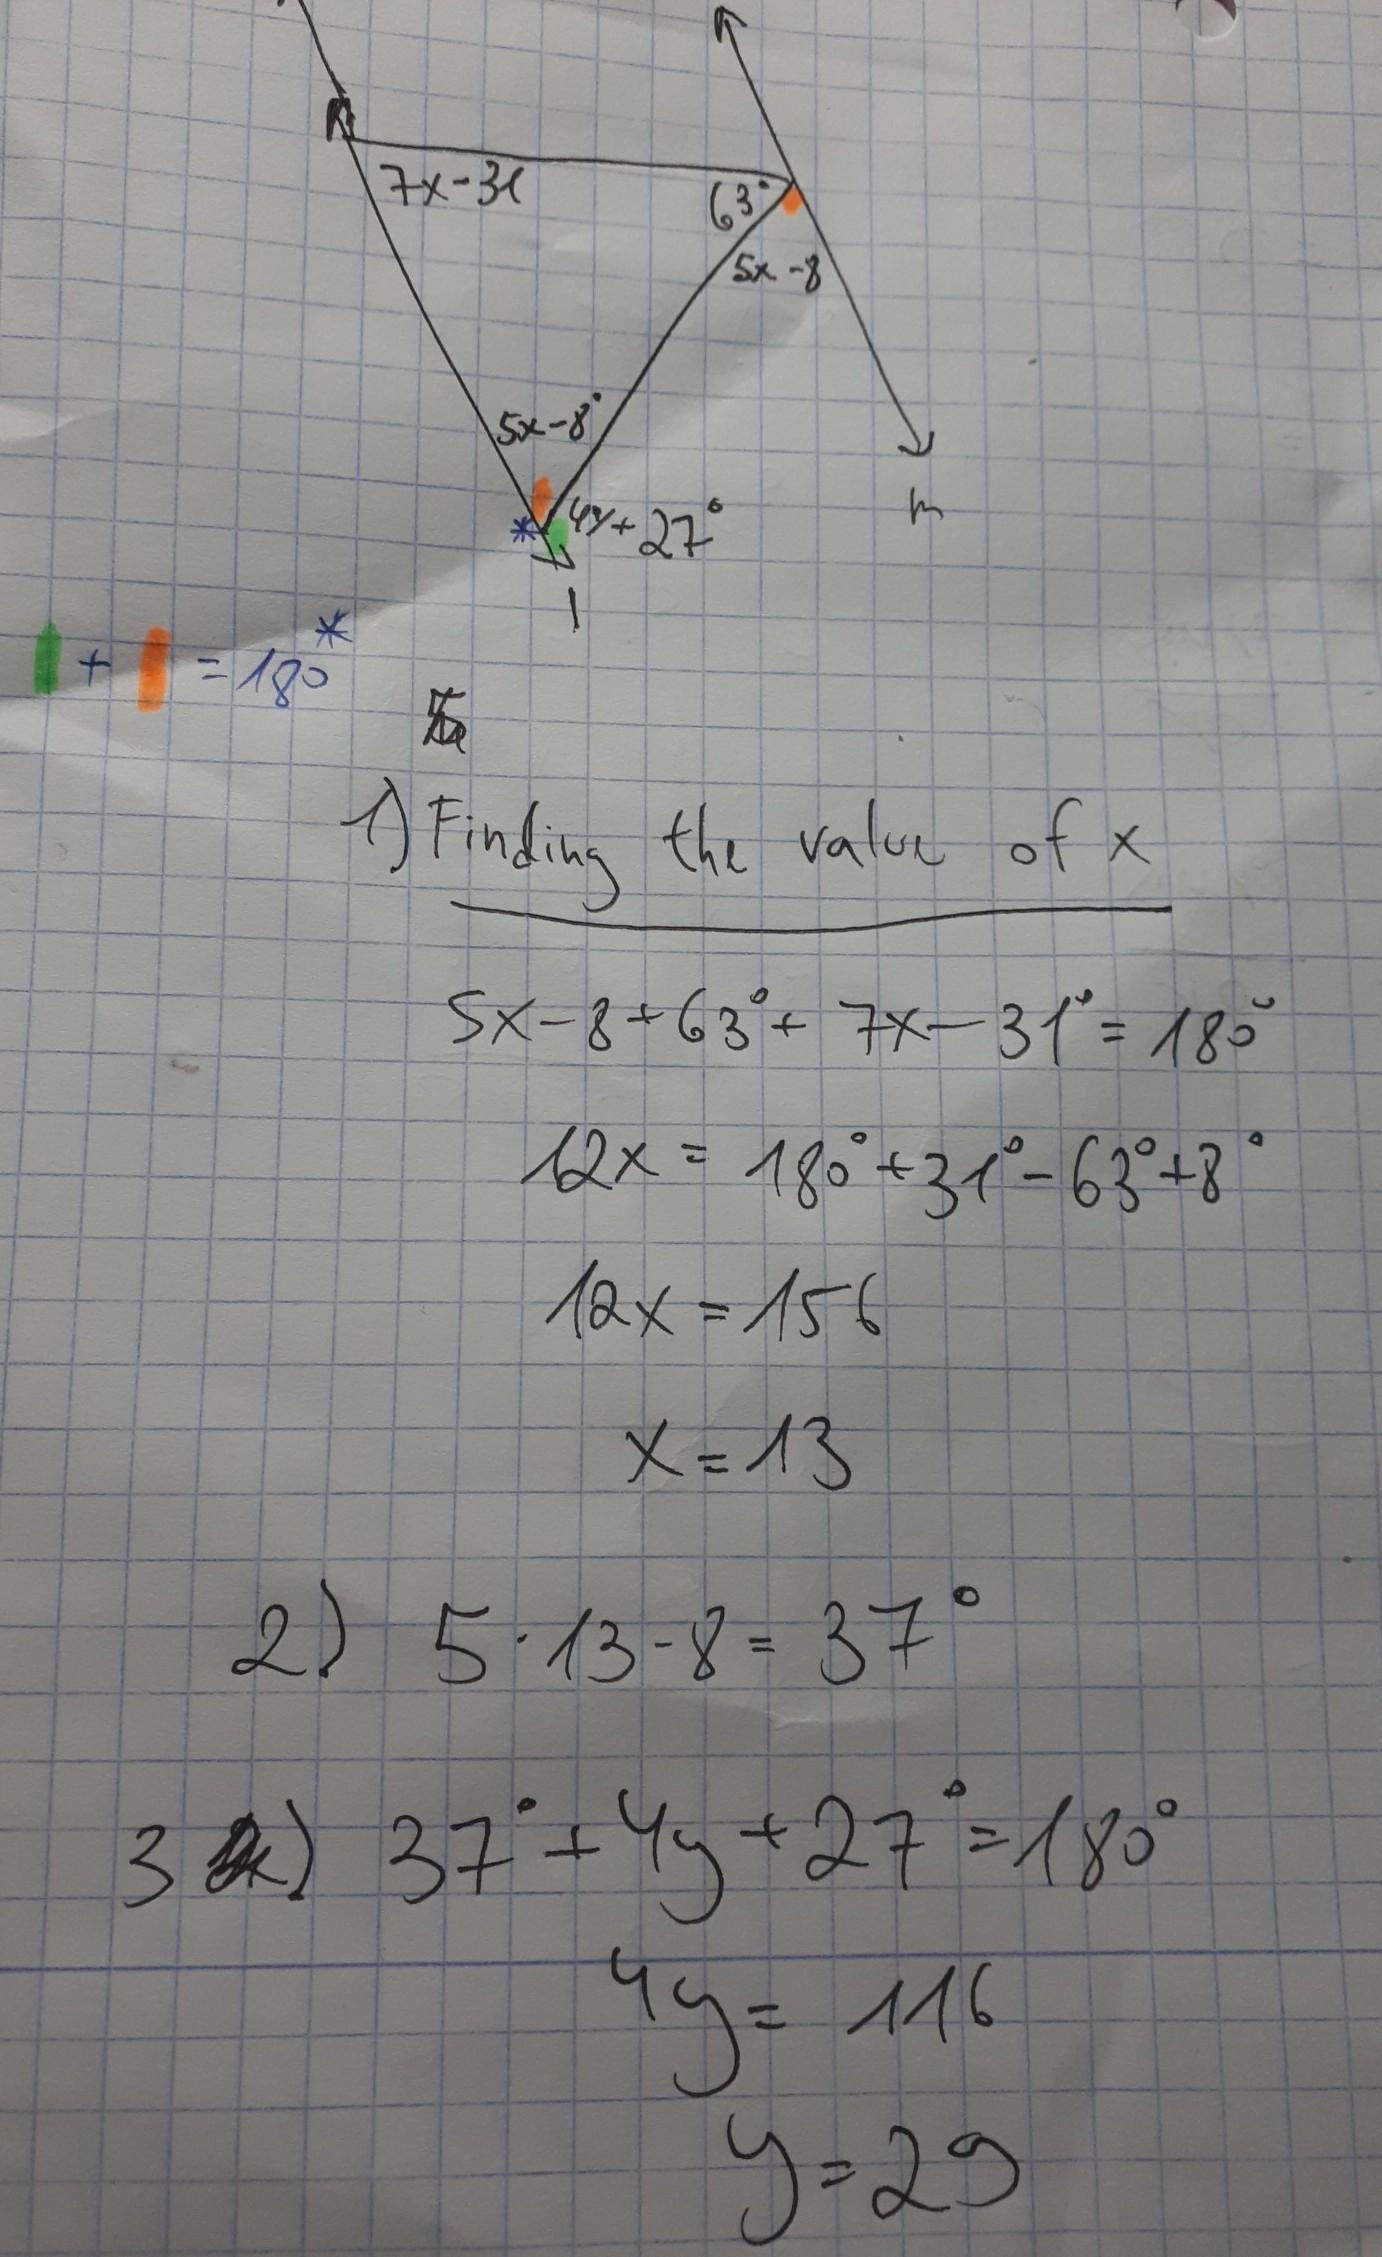 7x-31
63°
5x-8
5x-8°
* 4y+27°
l
m
+ = 180*
1) Finding the value of x
5x-8+63°+7x-31°=180°
12x=180°+31°-63°+8°
12x=156
x=13
2) 5·13-8=37°
3) 37°+4y+27°=180°
4y=116
y=29